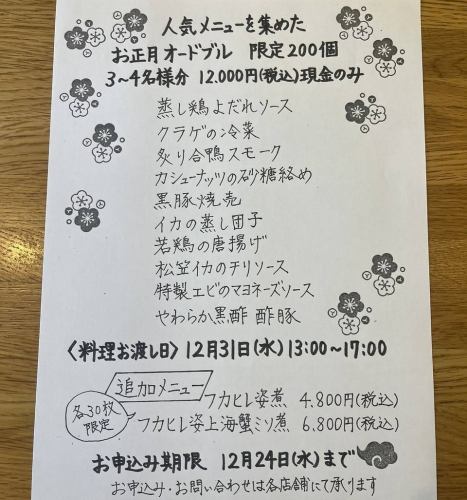 人気メニューを集めた
お正月オードブル 限定200個
3〜4名様分 12.000円(税込)現金のみ
蒸し鶏よだれソース
クラゲの冷菜
炙り合鴨スモーク
カシューナッツの砂糖絡め
黒豚焼売
イカの蒸し団子
若鶏の唐揚げ
松笠イカのチリソース
特製エビのマヨネーズソース
やわらか黒酢 酢豚
〈料理お渡し日〉12月31日(水)13:00〜17:00
追加メニュー
各30枚限定
フカヒレ姿煮 4.800円(税込)
フカヒレ姿上海蟹ミソ煮 6.800円(税込)
お申込み期限 12月24日(水)まで
お申込み・お問い合わせは各店舗にて承ります